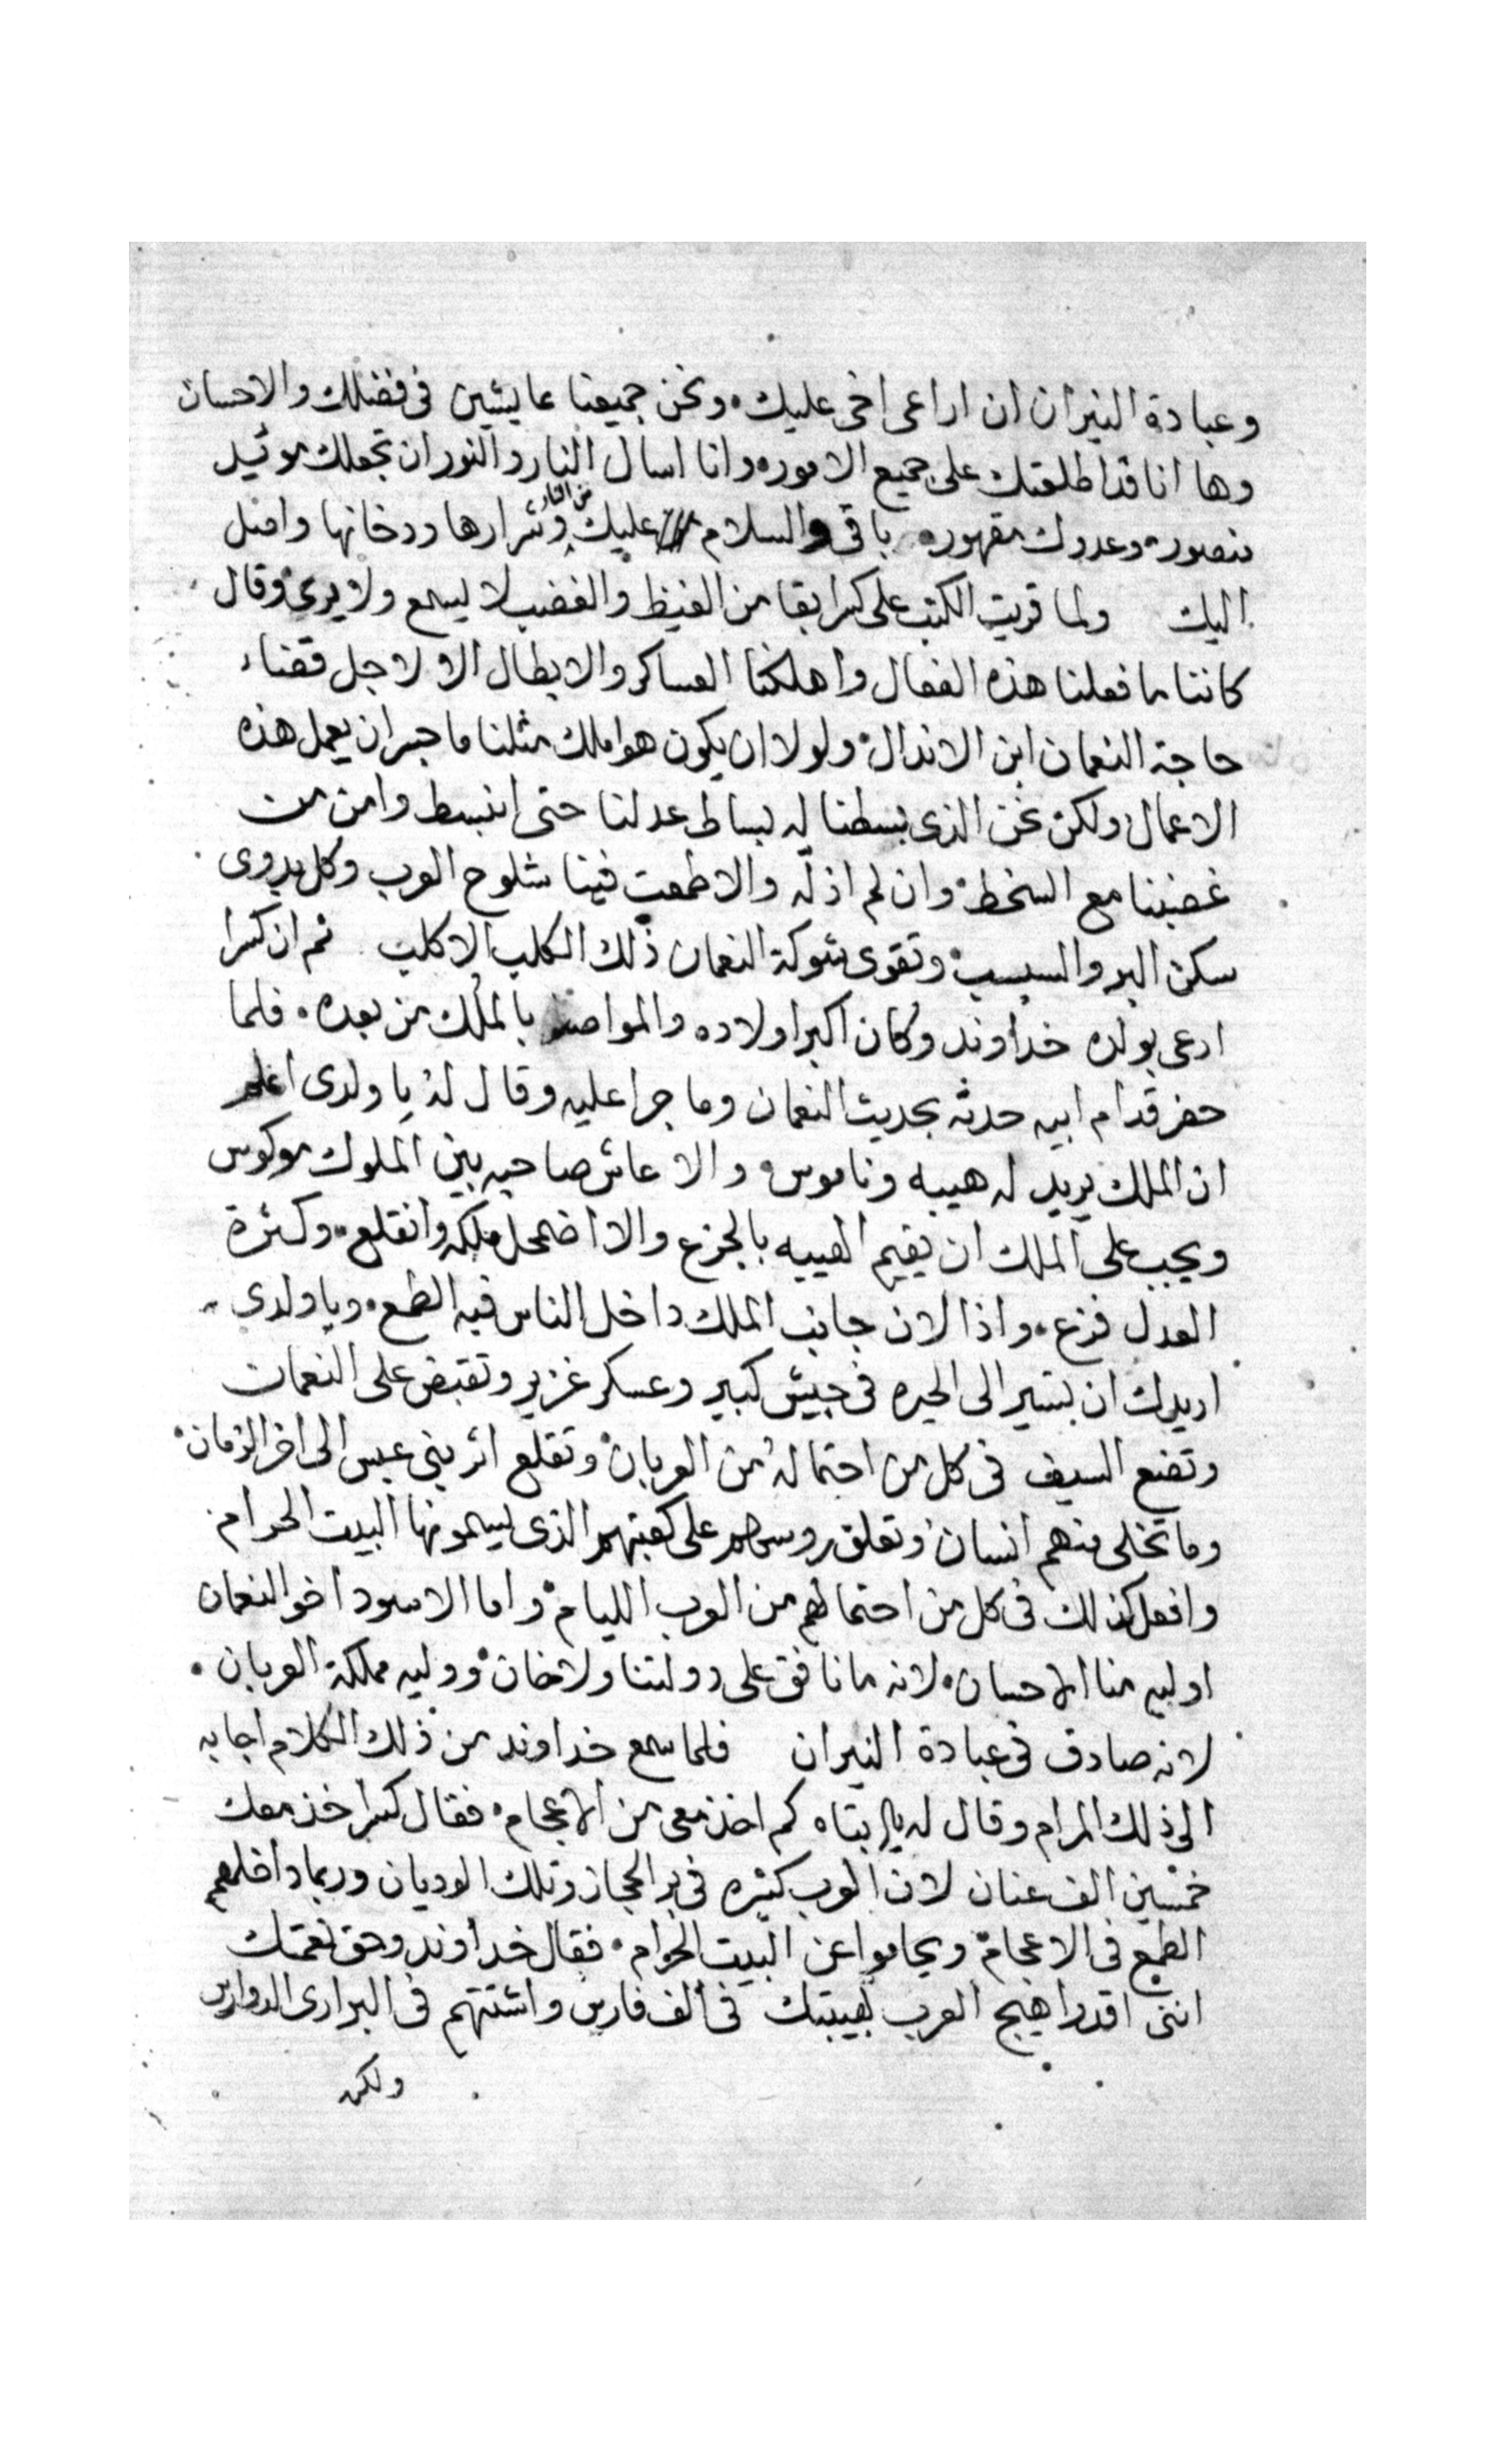 وعبادة النيران ان اراعى اخى عليك. ونحن جميعنا عايشين فى فضلك والاحسان
وها انا قد اطلعتك على جميع الامور. وانا اسال النار والنور ان تجعلك موئيد
منصور. وعدوك مقهور. باقى والسلام عليك من النار وشرارها ودخانها واصل
اليك ولما قريت الكتب على كسرا بقا من الغيظ والغضب لا يسمع ولا يرى. وقال
كاننا ما فعلنا هذه الفعال واهلكنا العساكر والابطال الا لاجل قضاء
حاجة النعمان ابن الاندال. ولولا ان يكون هو املك مثلنا ما جسر ان يعمل هذه
الاعمال. ولكن نحن الذى بسطنا له بساط عدلنا حتى انبسط وامن من
غضبنا مع السخط. وان لم اذله والا طمعت فينا شلوح العرب وكل بدوى
سكن البر والسبسب. وتقوى شوكة النعمان ذلك الكلب الاكلب ثم ان كسرا
ادعى بولده خداوند وكان اكبر اولاده والمواصى بالملك من بعده. فلما
حضر قدام ابيه حدثه بحديث النعمان وما جرا عليه وقال له يا ولدى اعلم
ان الملك يريد له هيبه وناموس. والا عاش صاحبه بين الملوك موكوس
ويجب على الملك ان يقيم الهيبه بالجزع والا اضمحل ملكه وانقلع. وكثرة
العدل فزع. واذا لان جانب الملك داخل الناس فيه الطمع. ويا ولدى
اريدك ان تسير الى الحيره فى جيش كبير وعسكر غزير وتقبض على النعمان
وتضع السيف فى كل من احتما له من العربان. وتقلع اثر بنى عبس الى اخر الزمان.
وما تخلى منهم انسان. وتعلق روسهم على كعبتهم الذى يسمونها البيت الحرام.
وافعل كذلك فى كل من احتما لهم من العرب الليام. واما الاسود اخو النعمان
اوليه منا الاحسان. لانه ما نافق على دولتنا ولا خان. ووليه مملكة العربان.
لانه صادق فى عبادة النيران فلما سمع خداوند من ذلك الكلام اجابه
الى ذلك المرام وقال له يا ابتاه كم اخذ معى من الاعجام. فقال كسرا خذ معك
خمسين الف عنان لان العرب كثيره فى بر الحجاز وتلك الوديان وربما داخلهم
الطمع فى الاعجام. ويحاموا عن البيت الحرام. فقال خداوند وحق نعمتك
اننى اقدر اهيج العرب بهيبتك فى الف فارس واشتتهم فى البرارى الدوارس
ولكن